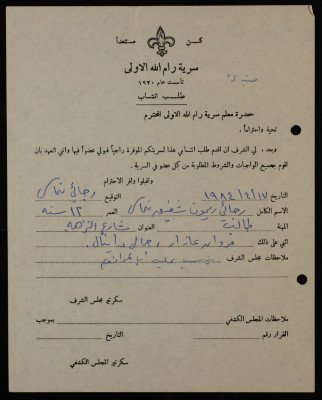 كــن مستعداً
سرية رام الله الاولى
تأسست عام ١٩٣٠
طلــب انتساب
حضرة معلم سرية رام الله الاولى المحترم
تحية واحتراماً ،
وبعد ، لي الشرف ان اقدم طلب انتسابي هذا لسريتكم الموقرة راجياً قبولي عضواً فيها وانني اتعهد بان
اقوم بجميع الواجبات والشروط المطلوبة من كل عضو في السرية .
واقبلوا وافر الاحترام
التاريخ ١٩٨٤/٤/١٧ التوقيع رجائي
الاسم الكامل رجائي ريمون شفيق العمر ١٢ سنه
المهنة طالب العنوان شارع النزهه
اثنى على ذلك مروان عازار ، جمال دانيال
ملاحظات مجلس الشرف
سكرتير مجلس الشرف
ملاحظات المجلس الكشفي بموجب
القرار رقم التاريخ
سكرتير المجلس الكشفي